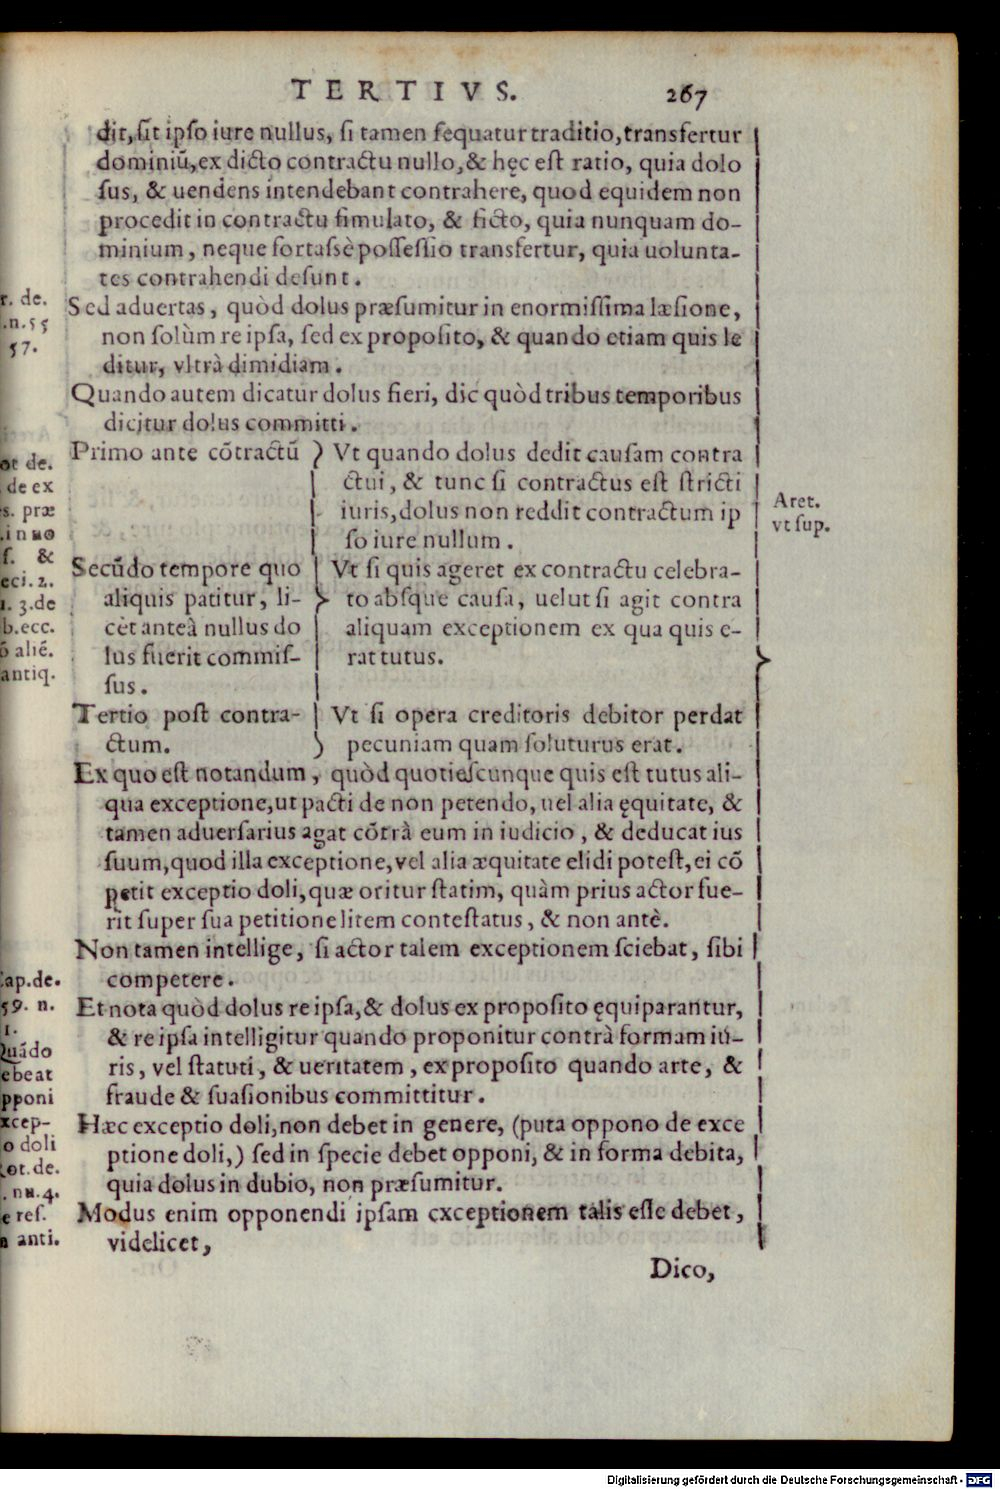 TERTIVS. 267
dit, sit ipso iure nullus, si tamen sequatur traditio, transfertur
dominiũ, ex dicto contractu nullo, & hęc est ratio, quia dolo
sus, & uendens intendebant contrahere, quod equidem non
procedit in contractu simulato, & ficto, quia nunquam do-
minium, neque fortassè possessio transfertur, quia uolunta-
tes contrahendi desunt.
Sed aduertas, quòd dolus præsumitur in enormissima læsione,
non solùm re ipsa, sed ex proposito, & quando etiam quis le
ditur, vltrà dimidiam.
Quando autem dicatur dolus fieri, dic quòd tribus temporibus
dicitur dolus committi.
Primo ante cõtractũ
Vt quando dolus dedit causam contra
ctui, & tunc si contractus est stricti
iuris, dolus non reddit contractum ip
so iure nullum.
Secũdo tempore quo
aliquis patitur, li-
cèt anteà nullus do
lus fuerit commis-
sus.
Vt si quis ageret ex contractu celebra-
to absque causa, uelut si agit contra
aliquam exceptionem ex qua quis e-
rat tutus.
Tertio post contra-
ctum.
Vt si opera creditoris debitor perdat
pecuniam quam soluturus erat.
Ex quo est notandum, quòd quotiescunque quis est tutus ali-
qua exceptione, ut pacti de non petendo, uel alia ęquitate, &
tamen aduersarius agat cõtrà eum in iudicio, & deducat ius
suum, quod illa exceptione, vel alia æquitate elidi potest, ei cõ
petit exceptio doli, quæ oritur statim, quàm prius actor fue-
rit super sua petitione litem contestatus, & non antè.
Non tamen intellige, si actor talem exceptionem sciebat, sibi
competere.
Et nota quòd dolus re ipsa, & dolus ex proposito ęquiparantur,
& re ipsa intelligitur quando proponitur contrà formam iu-
ris, vel statuti, & ueritatem, ex proposito quando arte, &
fraude & suasionibus committitur.
Hæc exceptio doli, non debet in genere, (puta oppono de exce
ptione doli,) sed in specie debet opponi, & in forma debita,
quia dolus in dubio, non præsumitur.
Modus enim opponendi ipsam exceptionem talis esse debet,
videlicet,
Dico,
Aret.
vt sup.
r. de.
.n.55
57.
ot de.
de ex
s. præ
.in uo
f. &
eci. 2.
1. 3.de
b.ecc.
õ aliẽ.
antiq.
ap.de.
59. n.
1.
Quãdo
ebeat
pponi
xcep-
o doli
ot. de.
. nu.4.
e res.
n anti.
Digitalisierung gefördert durch die Deutsche Forschungsgemeinschaft - DFG